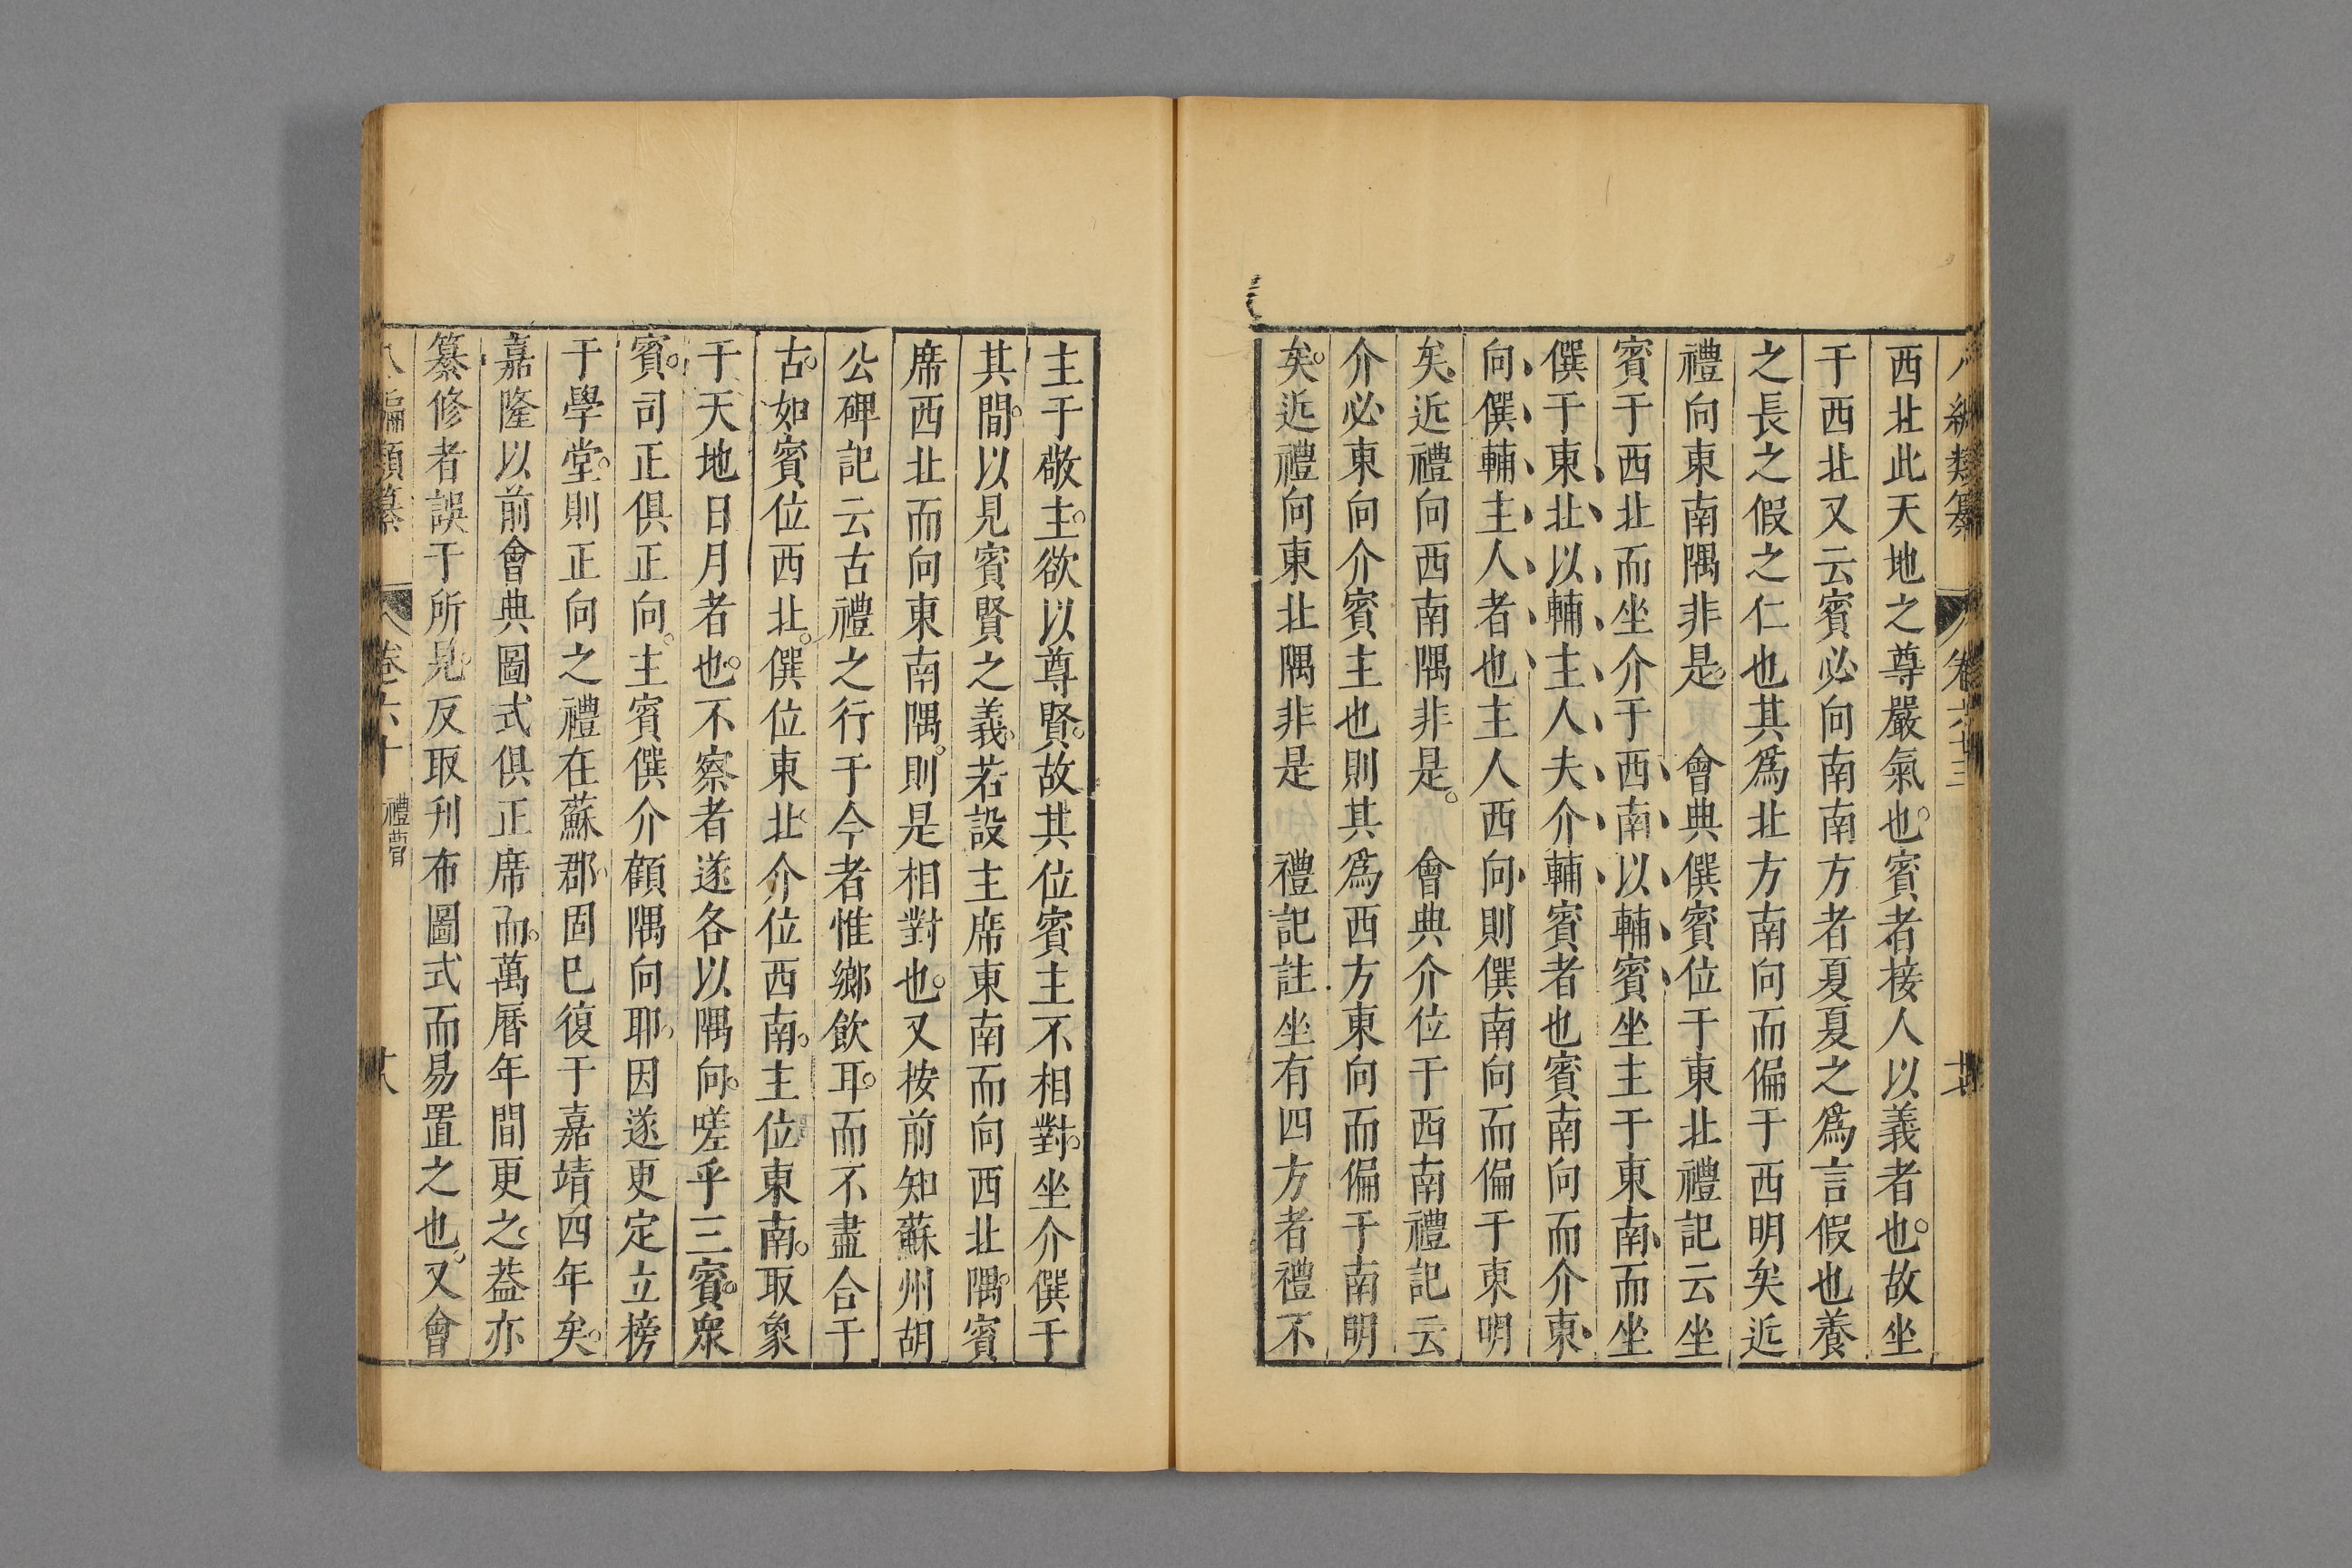 西北此天地之尊嚴氣也賓者接人以義者也故坐
于西北又云賓必向南南方者夏夏之爲言假也養
之長之假之仁也其爲北方南向而偏于西明矣近
禮向東南隅非是　會典僎賓位于東北禮記云坐
賓于西北而坐介于西南以輔賓坐主于東南而坐
僎于東北以輔主人夫介輔賓者也賓南向而介東
向僎輔主人者也主人西向則僎南向而偏于東明
矣近禮向西南隅非是　會典介位于西南禮記云
介必東向介賓主也則其爲西方東向而偏于南明
矣近禮向東北隅非是　禮記註坐有四方者禮不
主于敬主欲以尊賢故其位賓主不相對坐介僎于
其間以見賓賢之義若設主席東南而向西北隅賓
席西北而向東南隅則是相對也又按前知蘇州胡
公碑記云古禮之行于今者惟鄉飲耳而不盡合于
古如賓位西北僎位東北介位西南主位東南取象
于天地日月者也不察者遂各以隅向嗟乎三賓衆
賓司正俱正向主賓僎介顧隅向耶因遂更定立榜
于學堂則正向之禮在蘇郡固已復于嘉靖四年矣
嘉隆以前會典圖式俱正席而萬曆年間更之葢亦
纂修者誤于所見反取刊布圖式而易置之也又會
編類纂　卷六十　禮曹